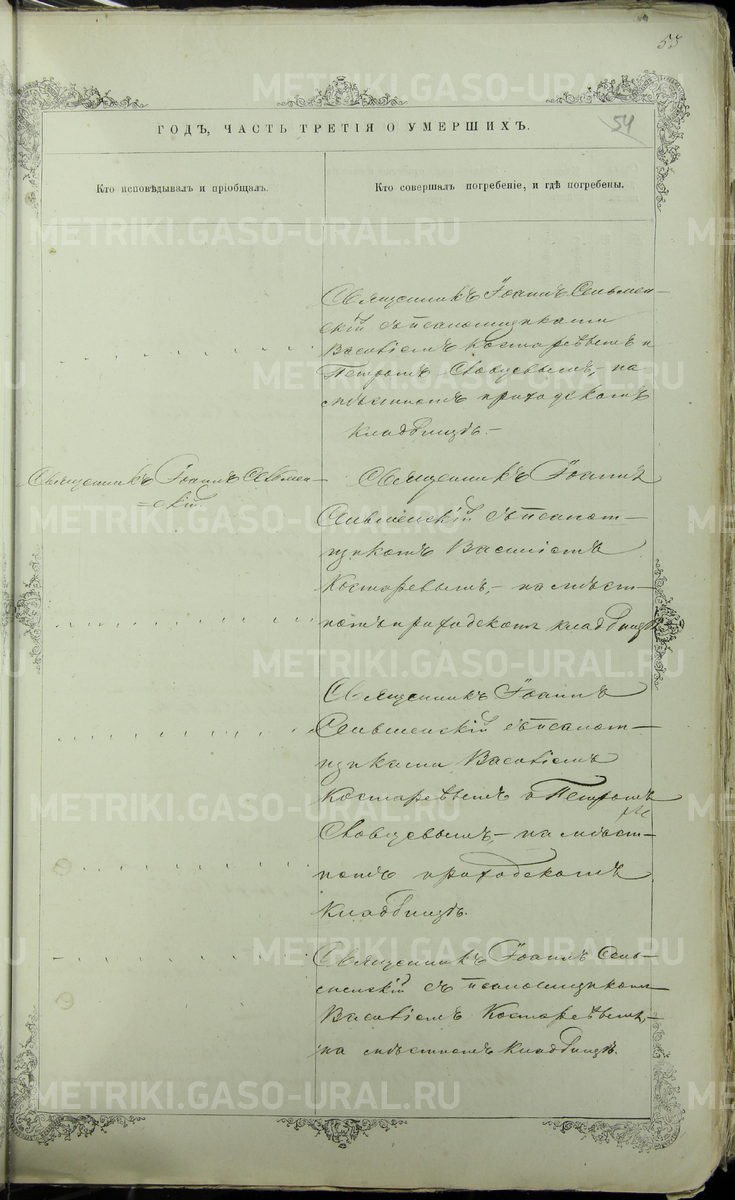 53
54
ГОДЪ, ЧАСТЬ ТРЕТІЯ О УМЕРШИХЪ.
Кто исповѣдывалъ и пріобщалъ.
Кто совершалъ погребеніе, и гдѣ погребены.
Священникъ Іоаннъ Сельмен-
скій съ псаломщиками
Василіемъ Костаревымъ и
Петромъ Словцевымъ,- на
мѣстномъ приходскомъ
кладбищѣ.-
Священникъ Іоаннъ Сельмен-
=скій.
Священникъ Іоаннъ
Сельменскій съ псалом-
щикомъ Василіемъ
Костаревымъ,- на мѣст-
номъ приходскомъ кладбищѣ
Священникъ Іоаннъ
Сельменскій съ псалом-
щиками Василіемъ
Костаревымъ и Петромъ
Словцевымъ,- на мѣст-
номъ приходскомъ
кладбищѣ.
Священникъ Іоаннъ Сель-
менскій съ псаломщикомъ
Василіемъ Костаревымъ,-
на мѣстномъ кладбищѣ.
METRIKI.GASO-URAL.RU